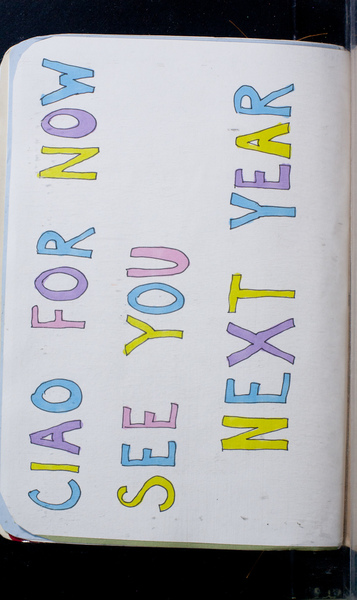 CIAO FOR NOW
SEE YOU
NEXT YEAR